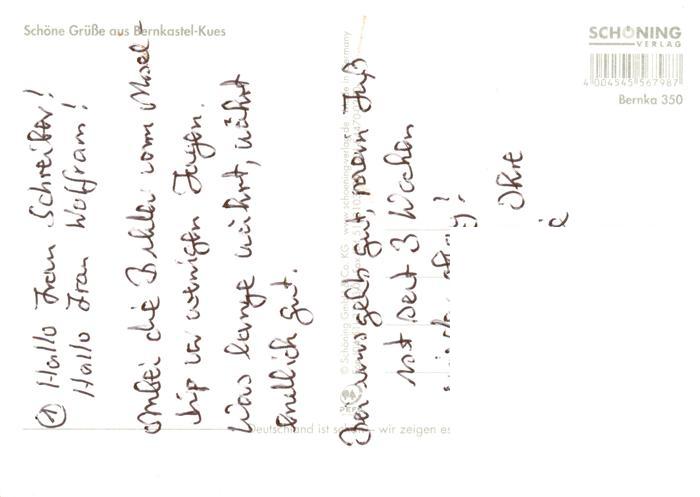 Schöne Grüße aus Bernkastel-Kues
SCHÖNING
VERLAG
4 004545 567987
Bernka 350
① Hallo Frau Schreiber!
Hallo Frau Wolfram!
Anbei die Bilder vom Mosel-
trip vor wenigen Tagen.
Was lange währt, währt
endlich gut.
Den uns geht's gut, mein Fuß
ist seit 3 Wochen
Ohre
© Schöning GmbH & Co. KG
www.schoening-verlag.de
Germany
Deutschland ist schön – wir zeigen es